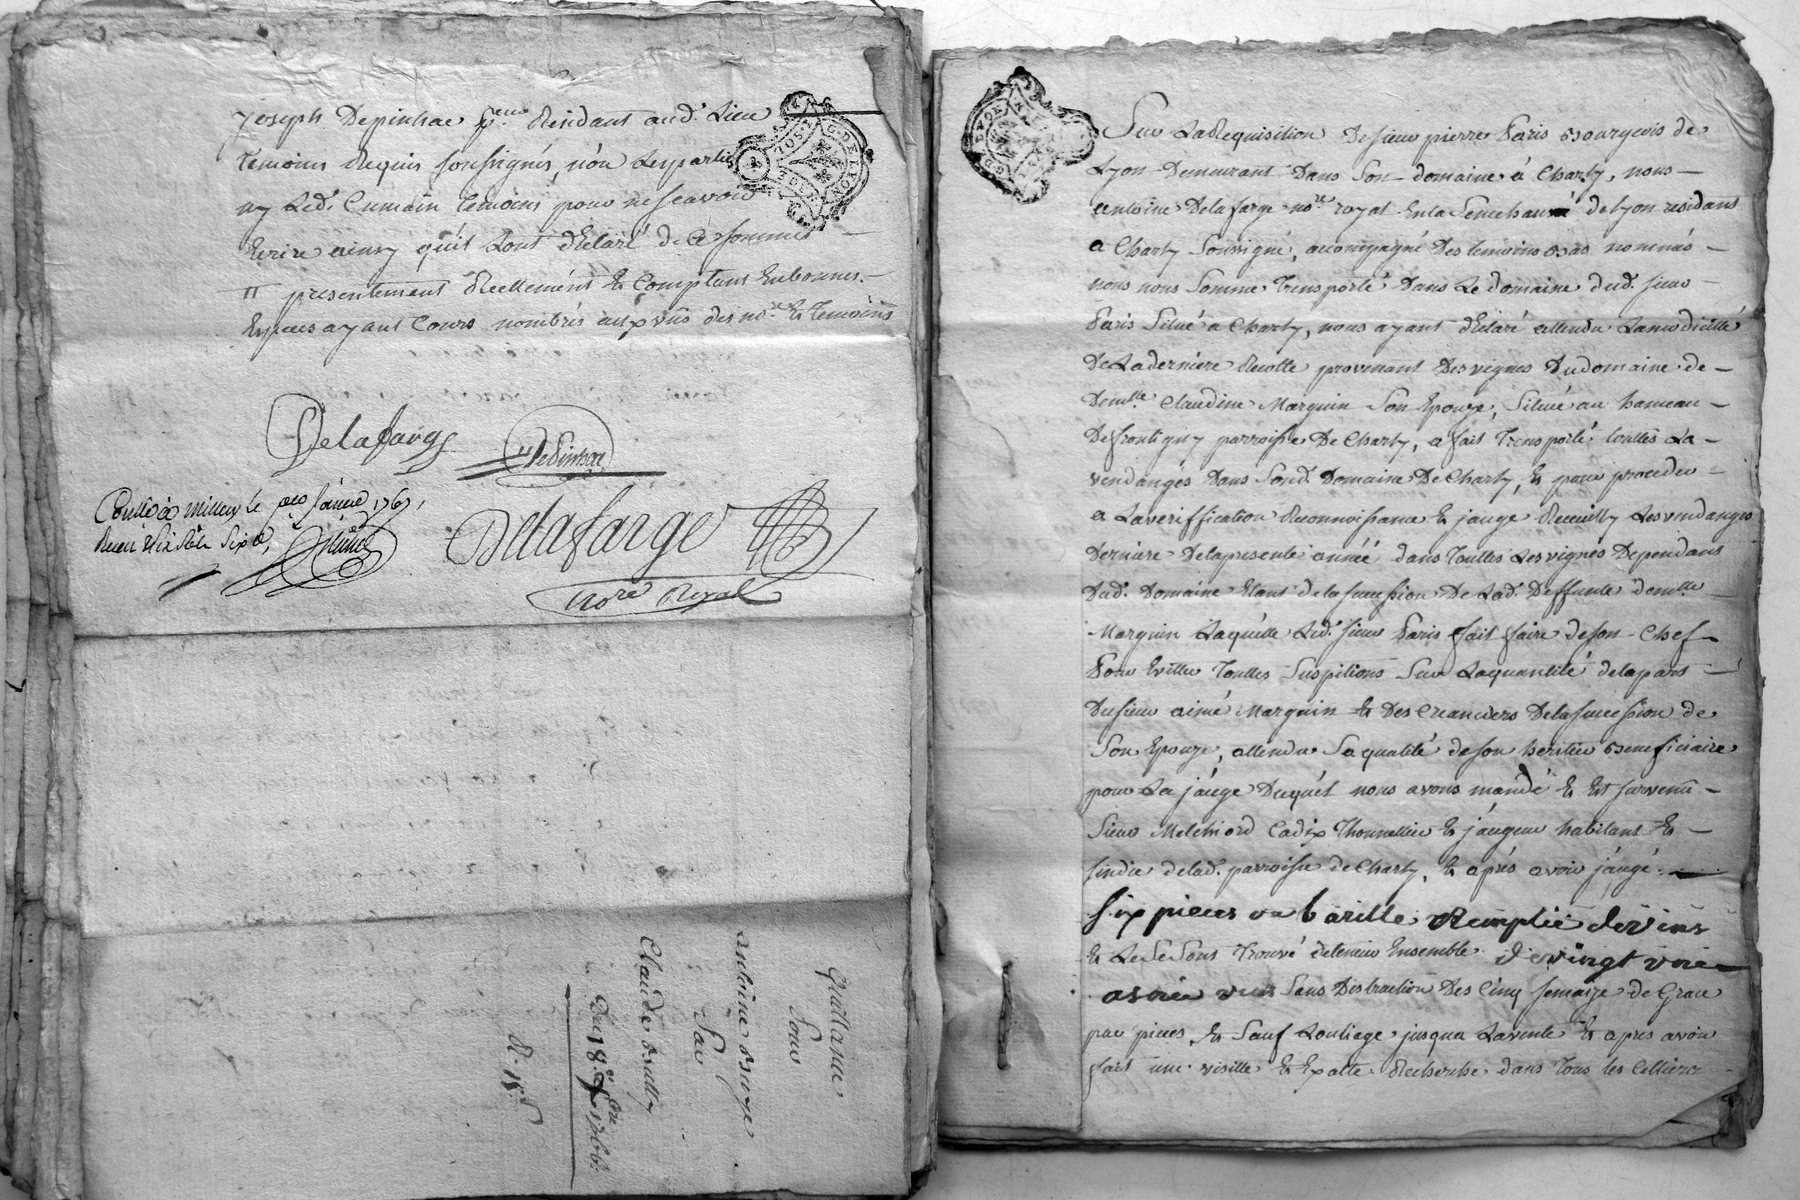 Joseph Depinhac p.re Résidant aud. Lieu
témoins Requis soussignés, non Les parties
ny Led. Cumain témoins pour ne scavoir
Ecrire ainsy quils Lont déclaré de ce sommés
presentement Réellement & Comptant En bonnes
Especes ayant Cours nombrés aux vûe des no.re & témoins
Delafarge
Depinhac
Conllé à Millery le janvier 1767,
Reçu Six Sols,
Delafarge
No.re Royal
Quittance
Pour
antoine
Par
Claude
Du 18.e 1766.
R. 18.s
Sur La Requisition De sieur pierre Paris Bourgeois de
Lyon Demeurant Dans Son domaine à Charly, nous
antoine Delafarge no.re royal En la Senechaussé de Lyon residant
a Charly Soussigné, accompagné Des temoins Bas nommés
nous nous Somme Transporté Dans Le domaine dud. sieur
Paris Situé a Charly, nous ayant déclaré attendu La modicitté
De La derniere Recolte provenant Des vignes Du domaine de
Dem.lle Claudine Marquin Son Epouze, Situé au hameau
De frontigny parroisse De Charly, a fait Transporté touttes La
vendanges Dans Sond. Domaine De Charly, & pour proceder
a La veriffication Reconnoissance & jauge Receuilly Les vendanges
Derniere De la presente année dans Touttes Les vignes Dependans
Dud. Domaine Etant de la succession De Lad. Deffunte dem.lle
Marquin Laquelle Led. sieur Paris fait faire de son Chef
Pour Eviter Touttes Suspitions Sur La quantité de la part
Du sieur aimé Marquin & Des Creanciers De la succession de
Son Epouze, attendu Sa qualité de son heritier Beneficiaire
pour La jauge Duquél nous avons mandé & Est survenu
Sieur Melchiord Cadix Thonnellier & jaugeur habitant &
sindic de lad. parroisse de Charly, & aprés avoir jaugé
six pieces ou barille Remplie de vins
& Le Se Sont Trouvé detenir Ensemble de vingt
asnée vin Sans Distraction Des Cinq semaize de Grace
par pieces, & Sauf Louliage jusqua La vente & apres avoir
fait une visitte & Exacte Recherche dans Tous les Celliers